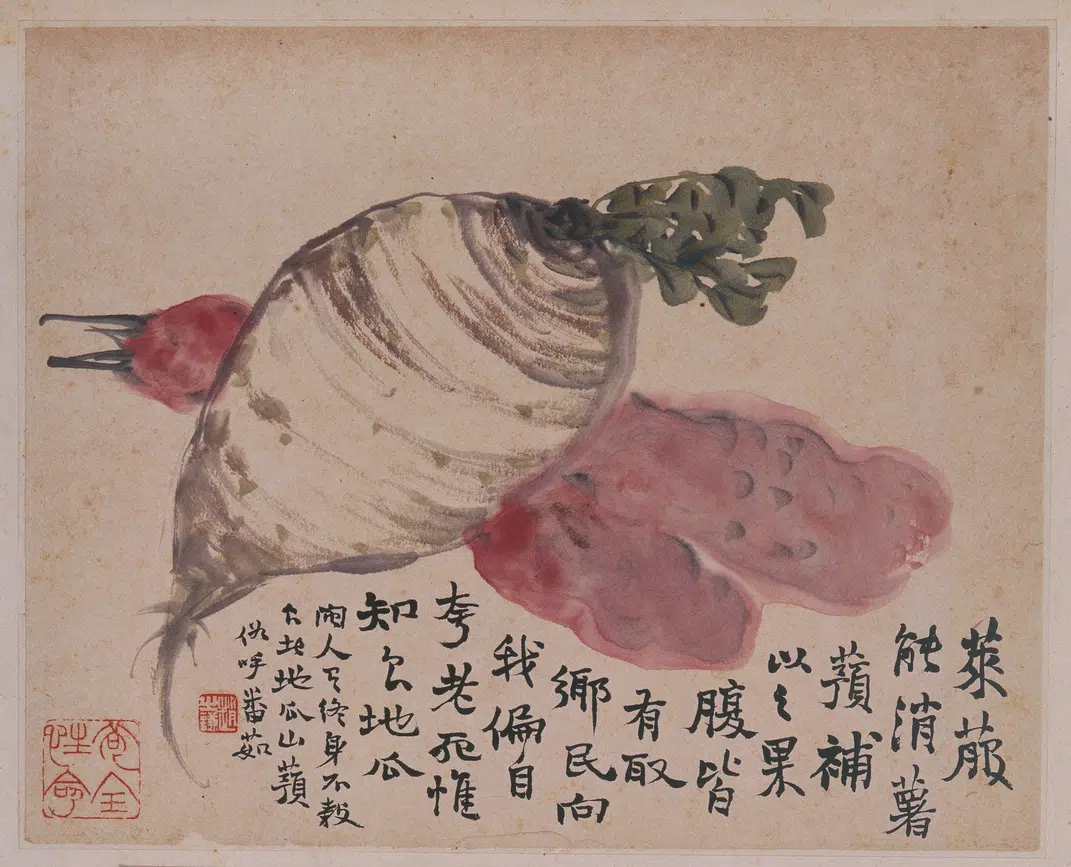 萊菔
能消薯
蕷補
以之果
腹皆
有取
鄉民向
我偏自
夸老死惟
知食地瓜
閩人終身不穀
食地瓜山蕷
俗呼番茹
苟全性命